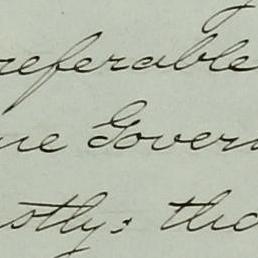 referable
ne Govern
ostly; tho